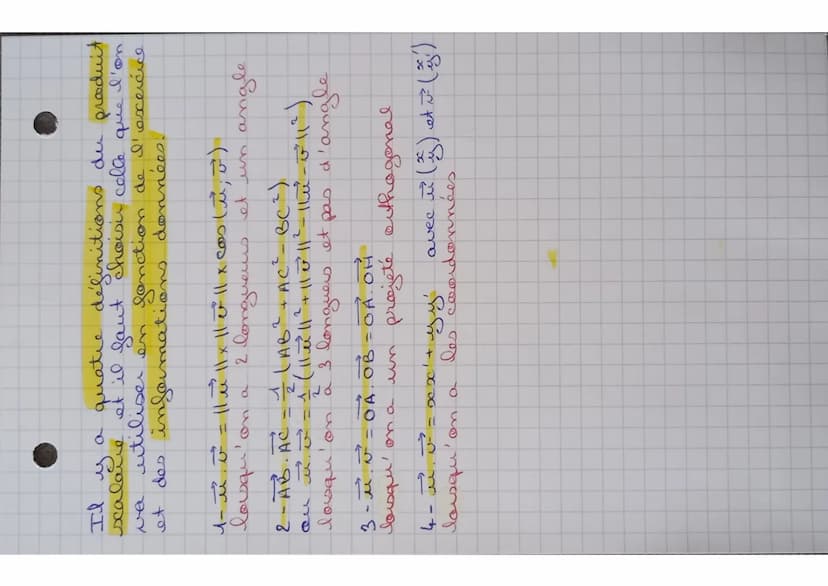 Il y a quatre définitions du produit
scalaire et il faut choisir celle que l'on
va utiliser en fonction de l'exercice
et des informations données.
1- u⃗.v⃗ = ||u⃗|| x ||v⃗|| x cos(u⃗;v⃗)
lorsqu'on a 2 longueurs et un angle
2- AB⃗.AC⃗ = 1/2 (AB² + AC² - BC²)
ou u⃗.v⃗ = 1/2 (||u⃗||² + ||v⃗||² - ||u⃗-v⃗||²)
lorsqu'on a 3 longueurs et pas d'angle
3- u⃗.v⃗ = OA⃗.OB⃗ = OA⃗.OH⃗
lorsqu'on a un projeté orthogonal
4- u⃗.v⃗ = xx' + yy' avec u⃗(x y) et v⃗(x' y')
lorsqu'on a les coordonnées